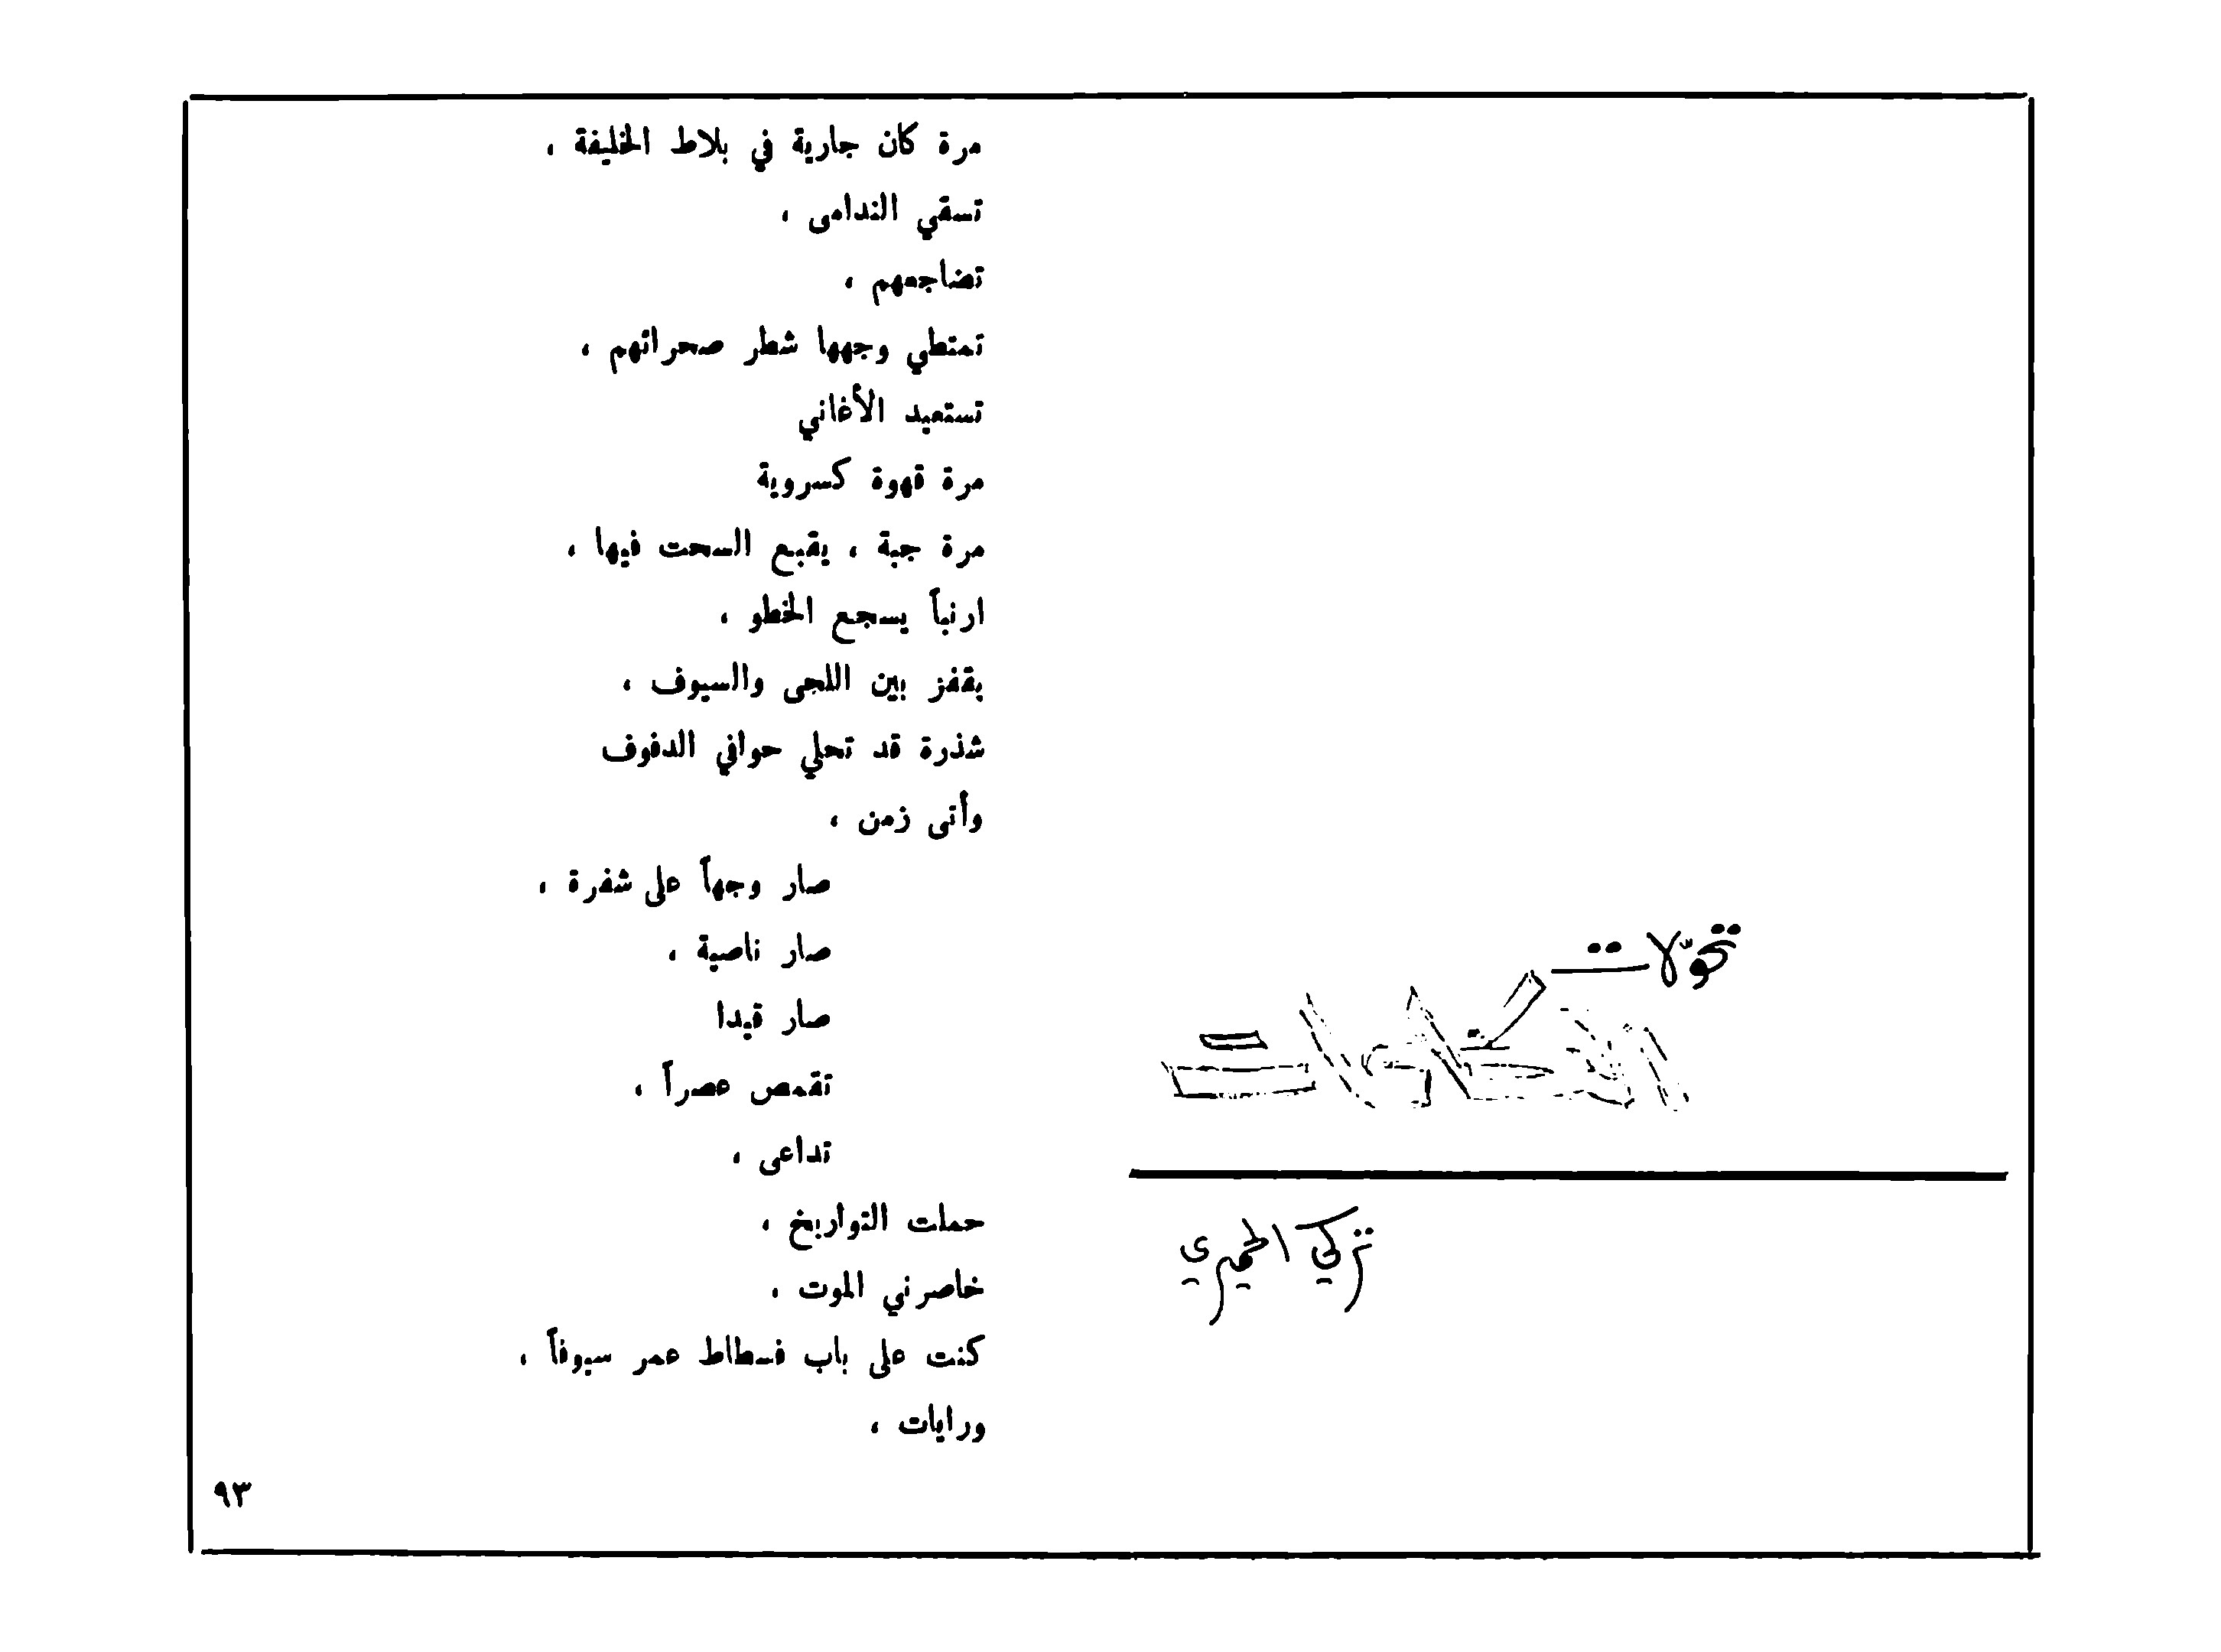 تحوّلات
تركي الحميري
مرة كان جارية في بلاط الخليفة ،
تسقي الندامى ،
تضاجعهم ،
تمتطي وجهها شطر صحرائهم ،
تستعيد الأغاني
مرة قهوة كسروية
مرة جبة ، يقبع السحت فيها ،
ارنباً يسجع الخطو ،
يقفز بين اللحى والسيوف ،
شذرة قد تحلي حوافي الدفوف
وأتى زمن ،
صار وجهاً على شفرة ،
صار ناصية ،
صار قيدا
تقمص عصراً ،
تداعى ،
حملت التواريخ ،
خاصرني الموت ،
كنت على باب فسطاط عمر سيوفاً ،
ورايات ،
٩٣